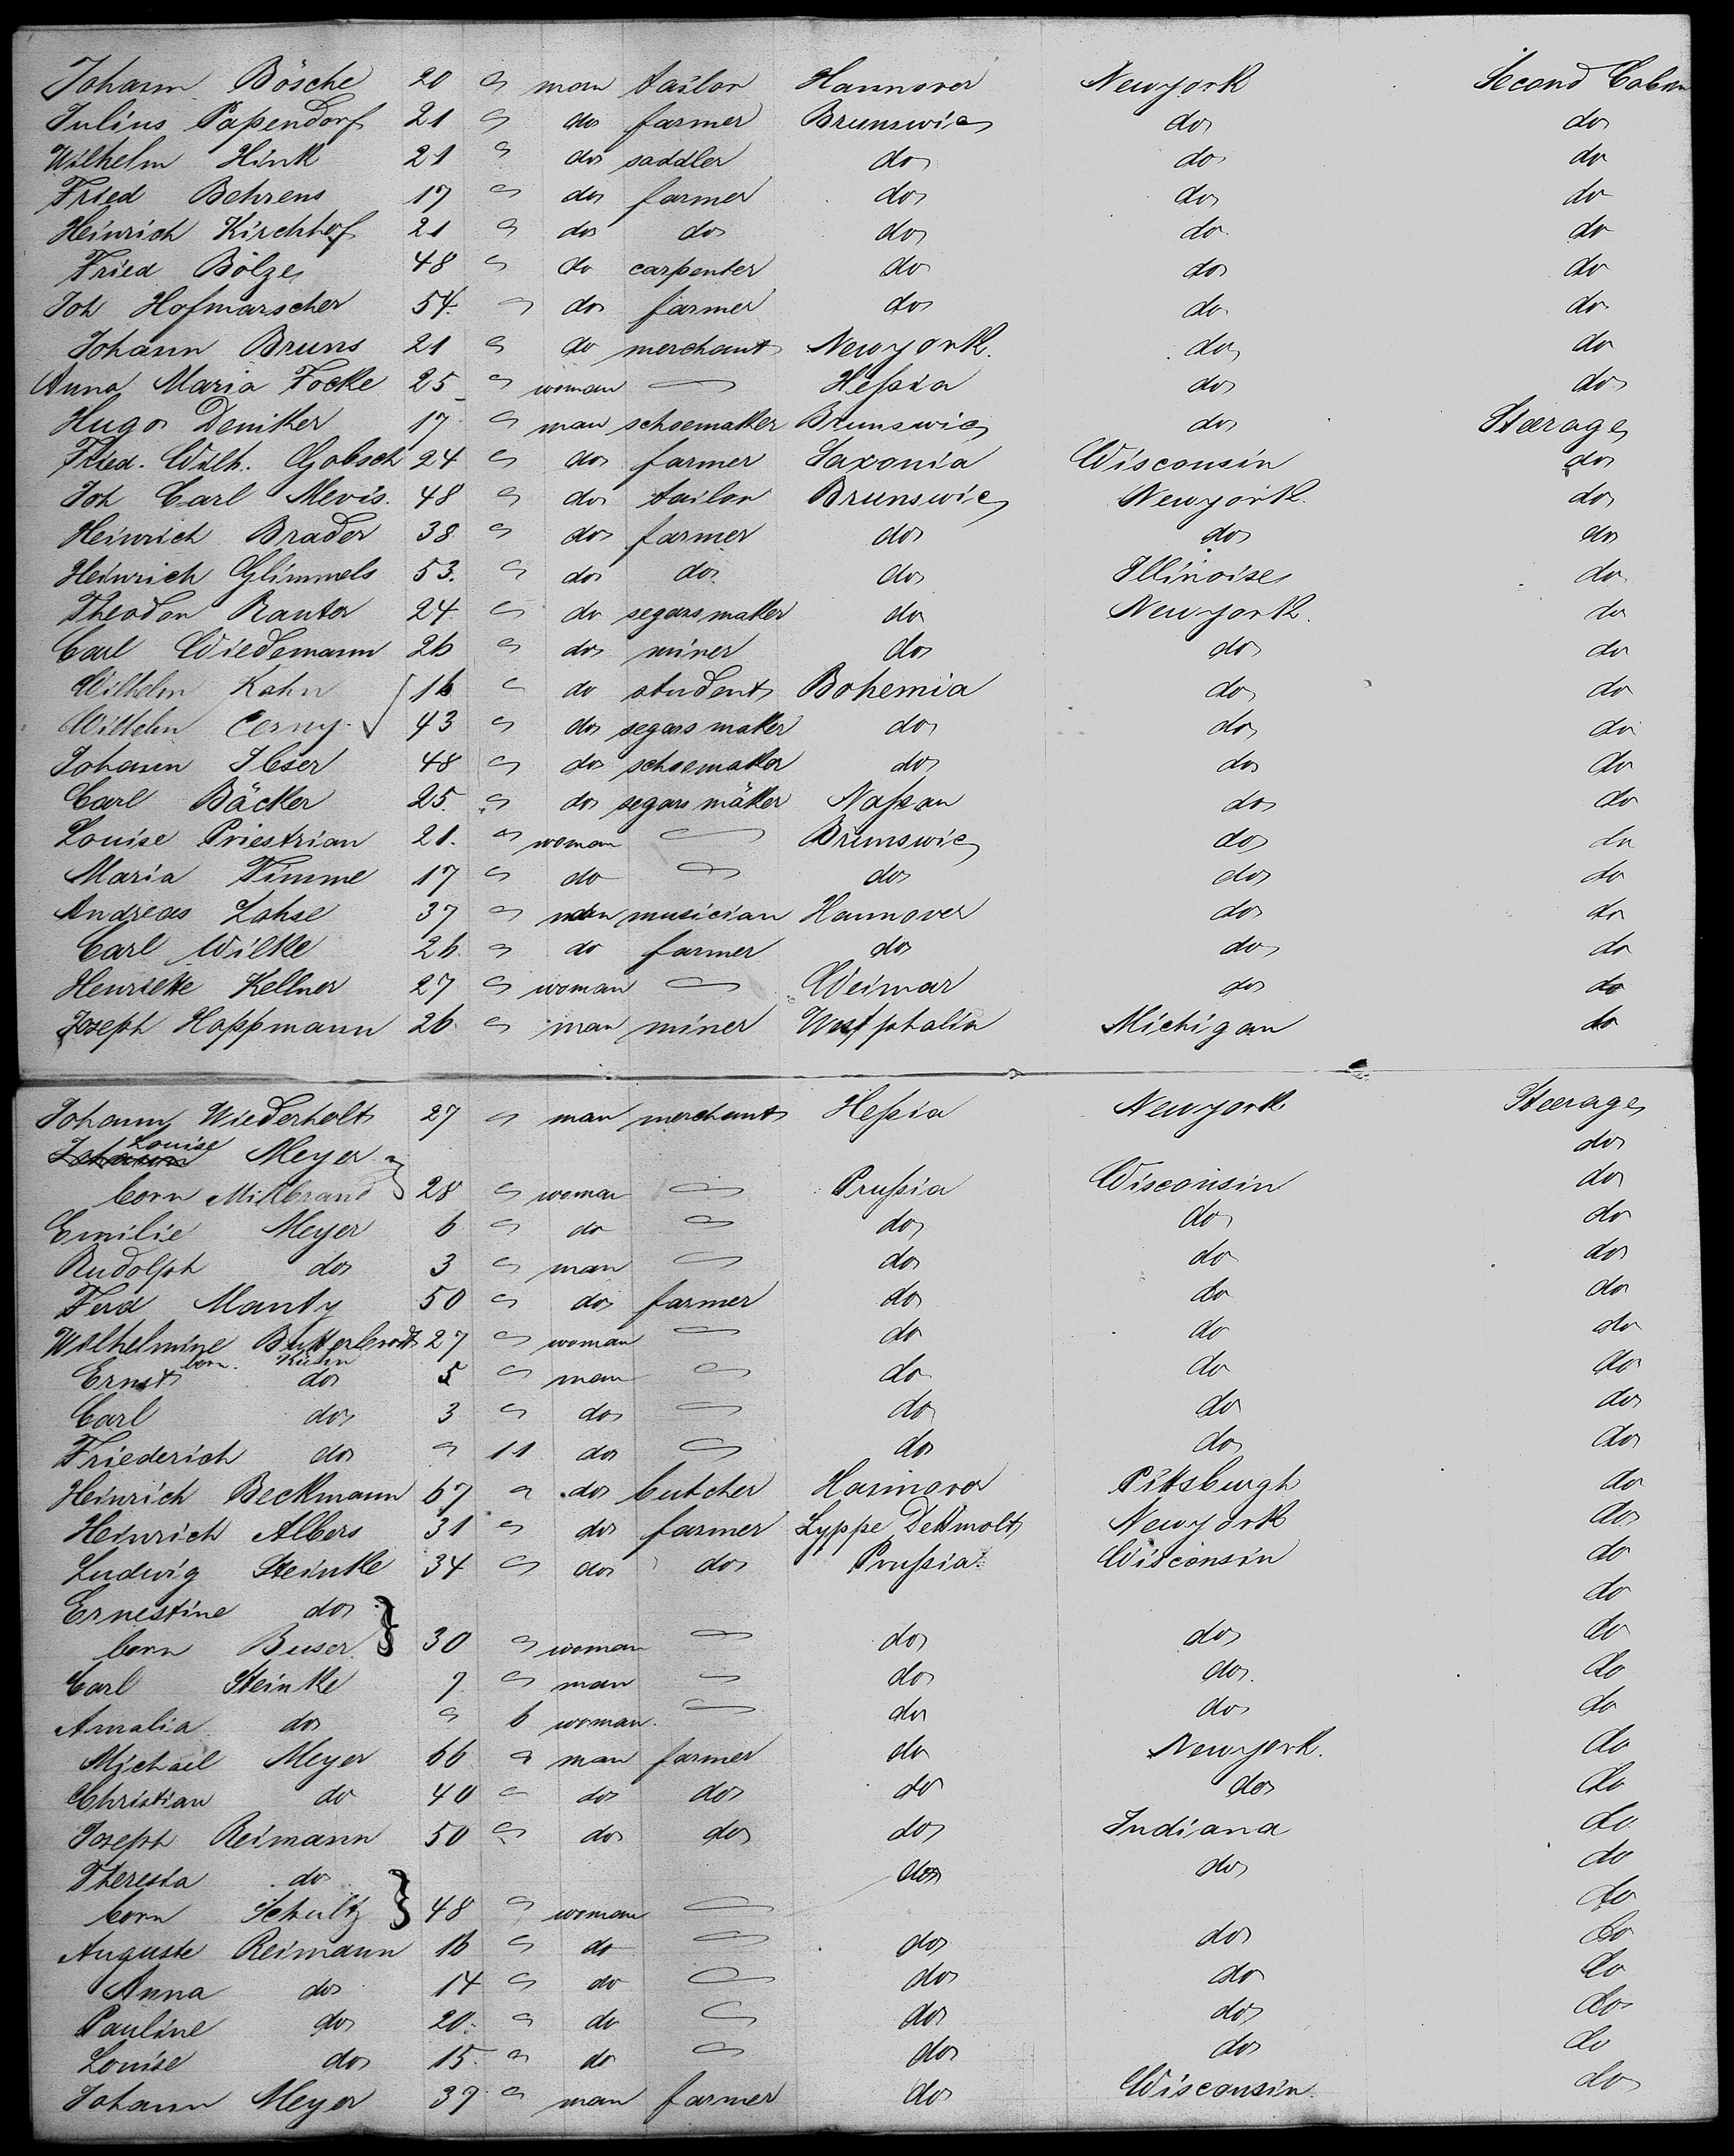 Johann Bösche 20 man tailor Hannover Newyork Second Cabin
Julius Papendorf 21 do farmer Brunswic do do
Wilhelm Hink 21 do saddler do do do
Fried Behrens 17 do farmer do do do
Heinrich Kirchhof 21 do do do do do
Fried Bölze 48 do carpenter do do do
Joh Hofmarscher 54. do farmer do do do
Johann Bruns 21 do merchant Newyork. do do
Anna Maria Focke 25 woman — Heßia do do
Hugo Deniker 17 man schoemaker Brunswic do Steerage
Fried. Wilh. Gobsch 24 do farmer Saxonia Wisconsin do
Joh Carl Mevis. 48 do tailor Brunswic Newyork. do
Heinrich Brader 38 do farmer do do do
Heinrich Glimmels 53. do do do Illinoise do
Theodor Rantor 24 do segarsmaker do Newyork. do
Carl Wiedemann 26 do miner do do do
Wilhelm Kohn 16 do student Bohemia do do
Wilhelm Cerny 43 do segars maker do do do
Johann 48 do schoemaker do do do
Carl Bäcker 25. do segars maker Naßau do do
Louise Priestrian 21. woman — Brunswic do do
Maria Timme 17 do — do do do
Andreas Lohse 37 man musician Hannover do do
Carl Wilke 26 do farmer do do do
Henriette Kellner 27 woman — Weimar do do
Joseph Hoppmann 26 man miner Westphalia Michigan do
Johann Wiederholt 27 man merchant Heßia Newyork Steerage
Johann Louise Meyer do
born Milbrand } 28 woman — Prußia Wisconsin do
Emilie Meyer 6 do — do do do
Rudolph do 3 man — do do do
Ferd Manty 50 do farmer do do do
Wilhelmine Butterbrodt 27 woman — do do do
born. Kühn
Ernst do 5 man — do do do
Carl do 3 do — do do do
Friederich do 11 do — do do do
Heinrich Beckmann 67 do butcher Hannover Pittsburgh do
Heinrich Albers 31 do farmer Lyppe Dettmolt Newyork do
Ludwig Steinke 34 do do Prußia Wisconsin do
Ernestine do do
born Buser } 30 woman — do do do
Carl Steinke 7. man — do do. do
Amalia do 6 woman. — do do do
Michael Meyer 66 man farmer do Newyork. do
Christian do 40 do do do do do
Joseph Reimann 50 do do do Indiana do
Theresia do do do do
born Schultz } 48 woman — do
Auguste Reimann 16 do — do do do
Anna do 14 do — do do do
Pauline do 20. do — do do do
Louise do 15. do — do do do
Johann Meyer 37 man farmer do Wisconsin do